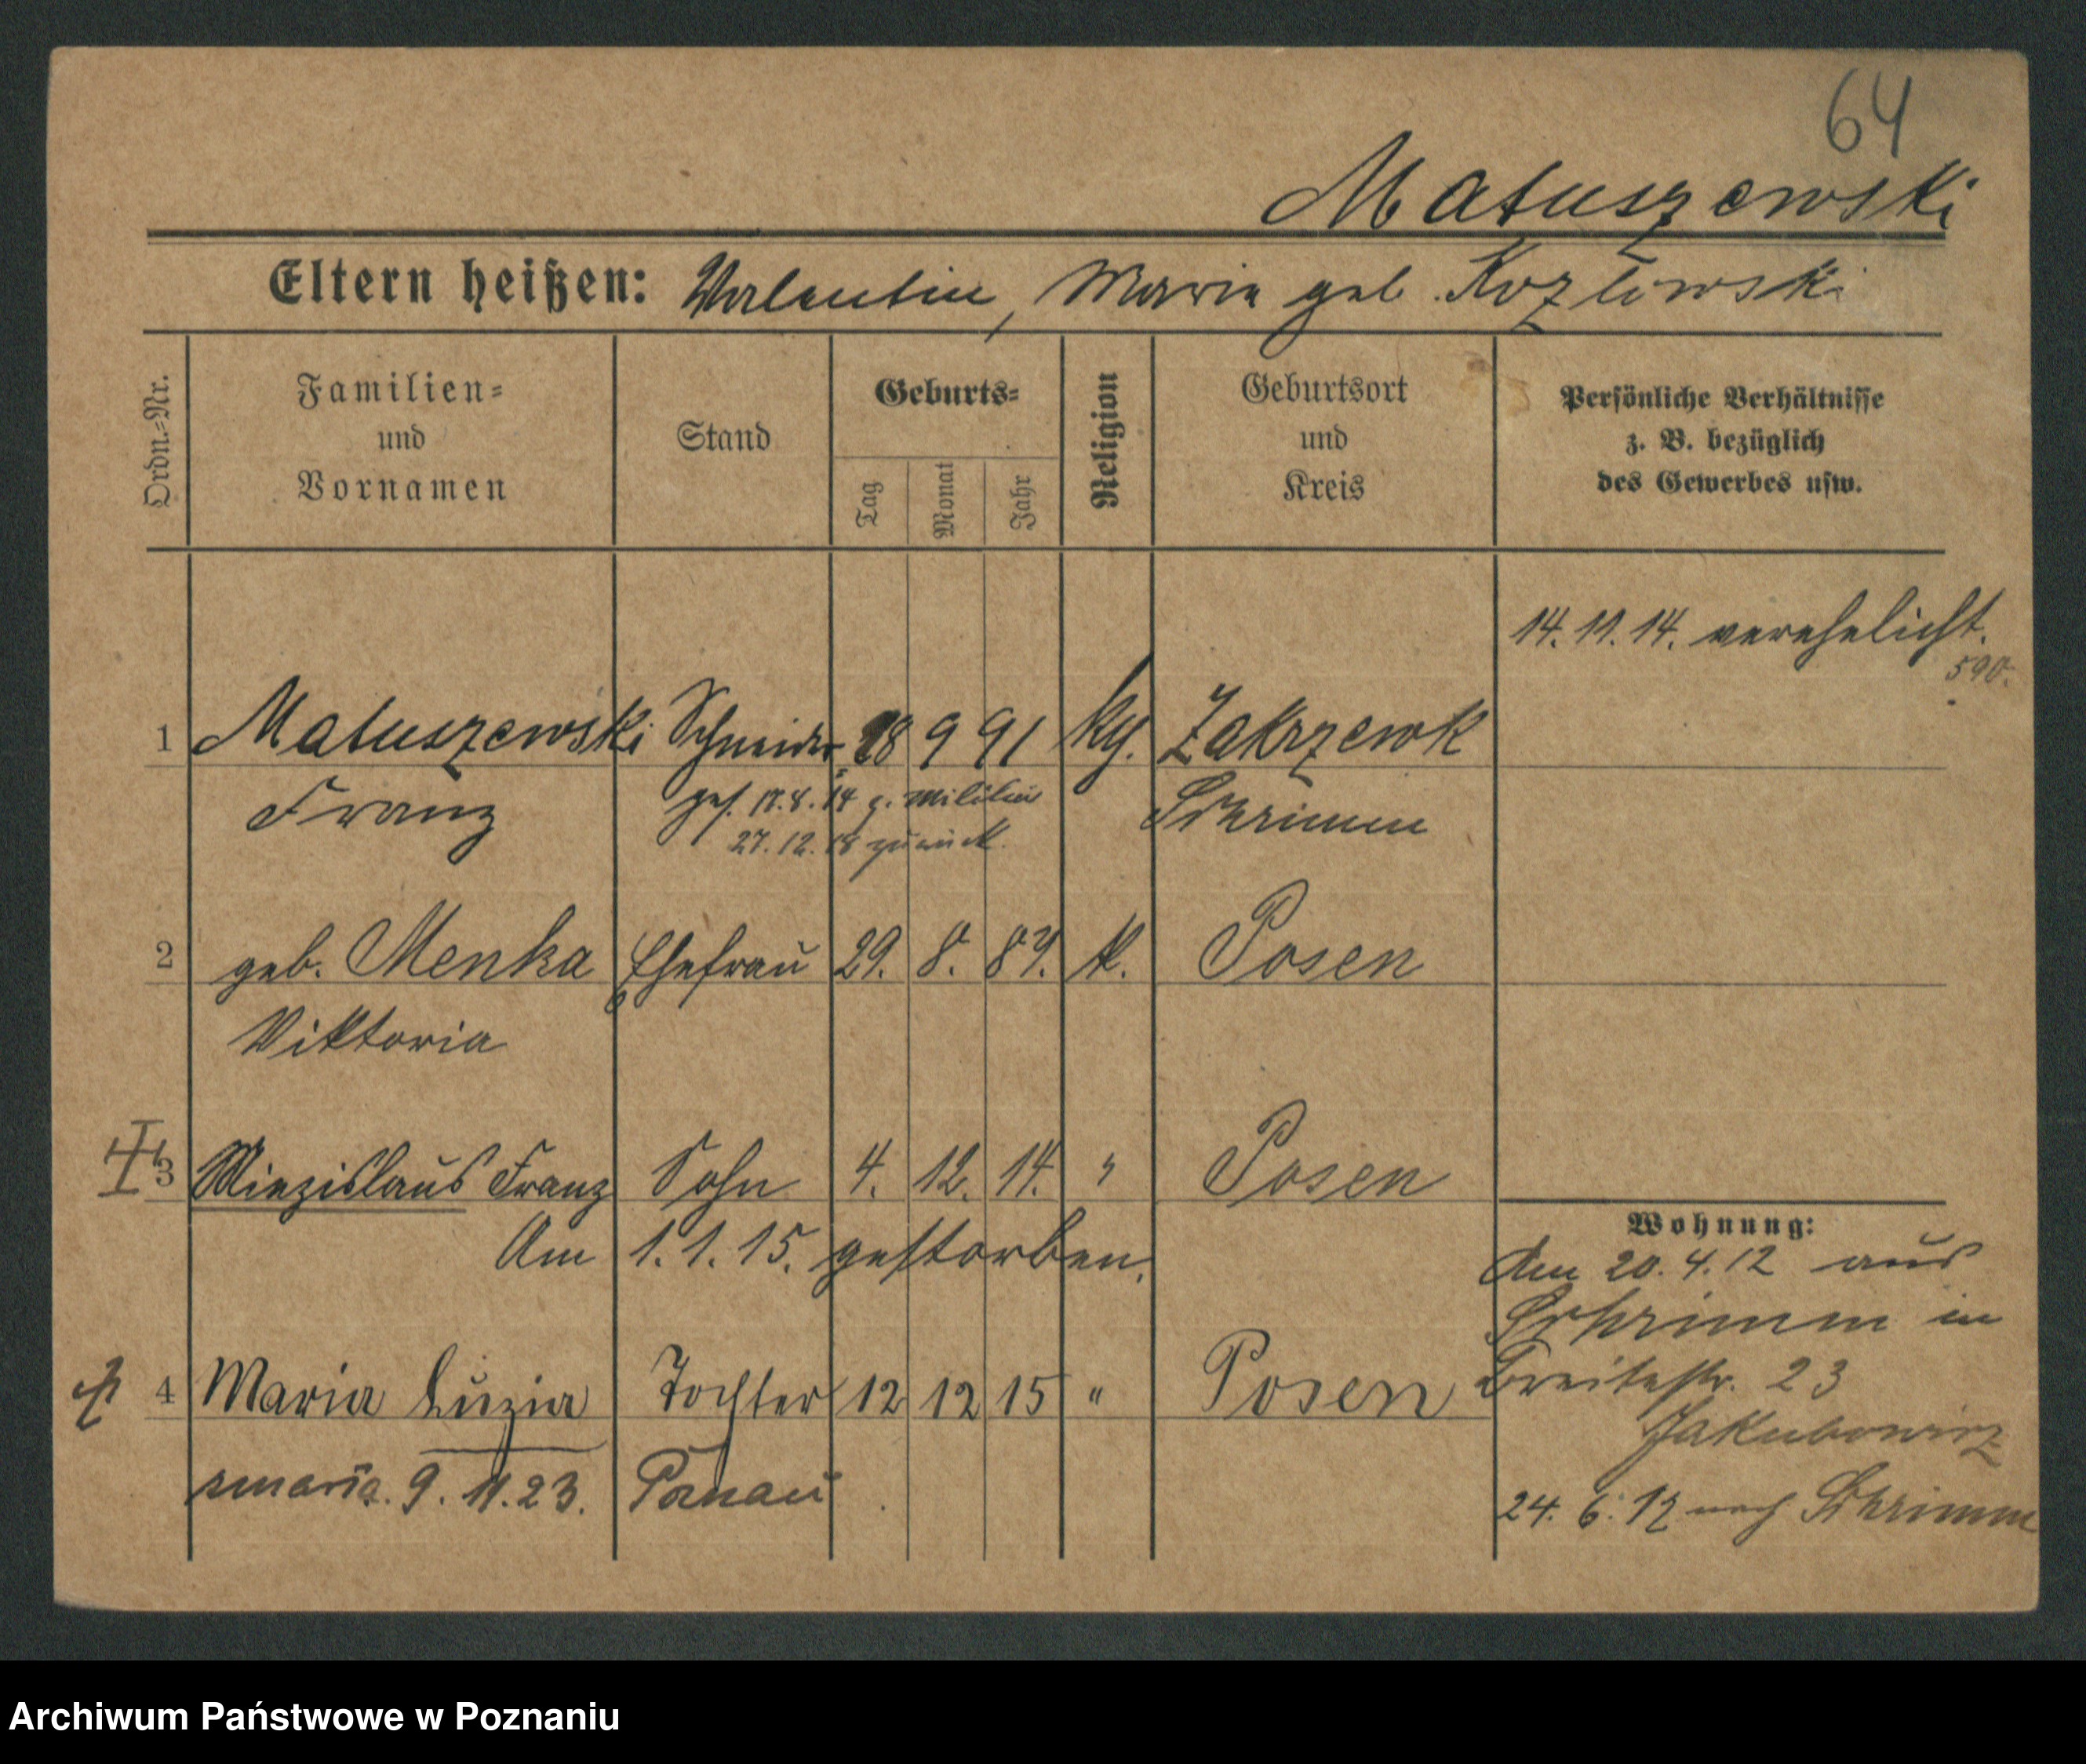 64
Matuszewski
Eltern heißen: Valentin, Maria geb. Kozlowski
Ordn.-Nr.
Familien-
und
Vornamen
Stand
Geburts-
Tag
Monat
Jahr
Religion
Geburtsort
und
Kreis
Persönliche Verhältnisse
z. B. bezüglich
des Gewerbes usw.
14. 11. 14. verehelicht.
590.
1 Matuszewski Schneider 28 9 91 kg. Zakrzewk
Franz
gest. 17.8.14 z. Militär
27.12.18 zurück.
Schrimm
2 geb. Menka Ehefrau 29. 8. 89. k. Posen
Viktoria
3 Miezislaus Franz Sohn 4. 12. 14. " Posen
Am 1. 1. 15. gestorben.
4 Maria Luzia Tochter 12 12 15 " Posen
zmarła. 9. 11. 23. Poznań
Wohnung:
Am 20. 4. 12 aus
Schrimm in
Breitestr. 23
Jakubowicz
24. 6. 12 nach Schrimm
Archiwum Państwowe w Poznaniu